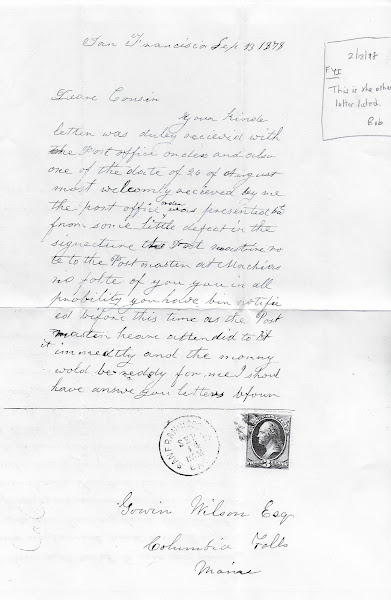 San Francisco Sep 13 1878
2/2/98
FYI
This is the other
letter listed.
Bob
Deare Cousin
Your kinde
letter was duley recieved with
the Post office order and also
one of the date of 26 of August
most welcomly recieved by me
the post office order was presented
from some little defeat in the
signature the Post mastive ro
te to the Postmaster at Machias
no folte of you you in all
probility you have bin notifie
ed before this time as the Post
master heare attendid to it
it immedtly and the monny
wold be reddy for me I shold
have answe you letters bfour
SAN FRANCISCO
SEP
13
CAL
Gowin Wilson Esq
Columbia Falls
Maine